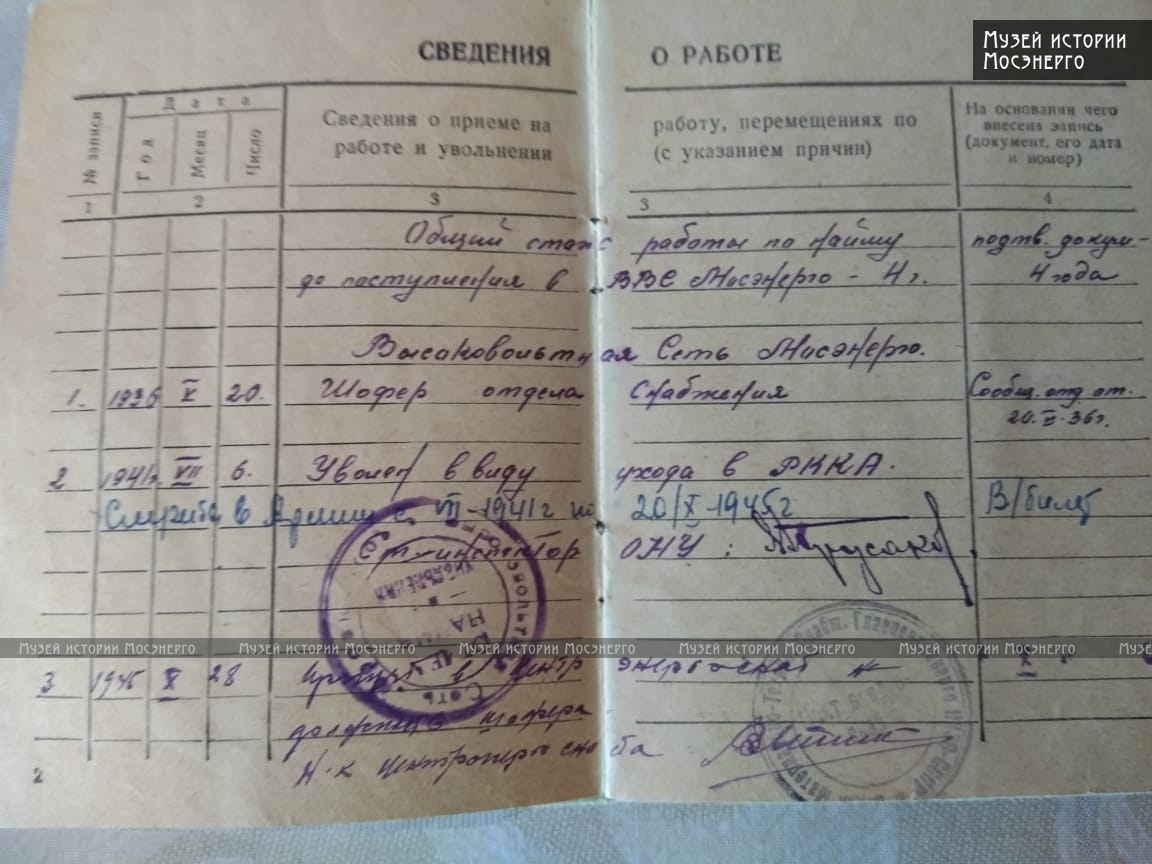 Музей истории
Мосэнерго
СВЕДЕНИЯ О РАБОТЕ
№ записи
Дата
Год
Месяц
Число
Сведения о приеме на работу, перемещениях по
работе и увольнении (с указанием причин)
На основании чего
внесена запись
(документ, его дата
и номер)
1 2 3 3 4
Общий стаж работы по найму подтв. докум.-
до поступления в ВВС Мосэнерго - 4 г. 4 года
Высоковольтная Сеть Мосэнерго.
1. 1936 X 20. Шофер отдела снабжения Сообщ. отд. от.
20. X-36г.
2 1941г VII 6. Уволен в виду ухода в РККА.
Служба в Армии с VII-1941г по 20/X-1945г В/билет
Ст-инспектор ОНУ:
Музей истории Мосэнерго Музей истории Мосэнерго Музей истории Мосэнерго Музей истории Мосэнерго
3 1945 X 28 в Центрэнергоснаб X
шофера
Н-к Центрэнергоснаба
2